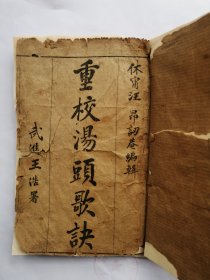 休甯汪昂訒菴編輯
重校湯頭歌訣
武進王浩署